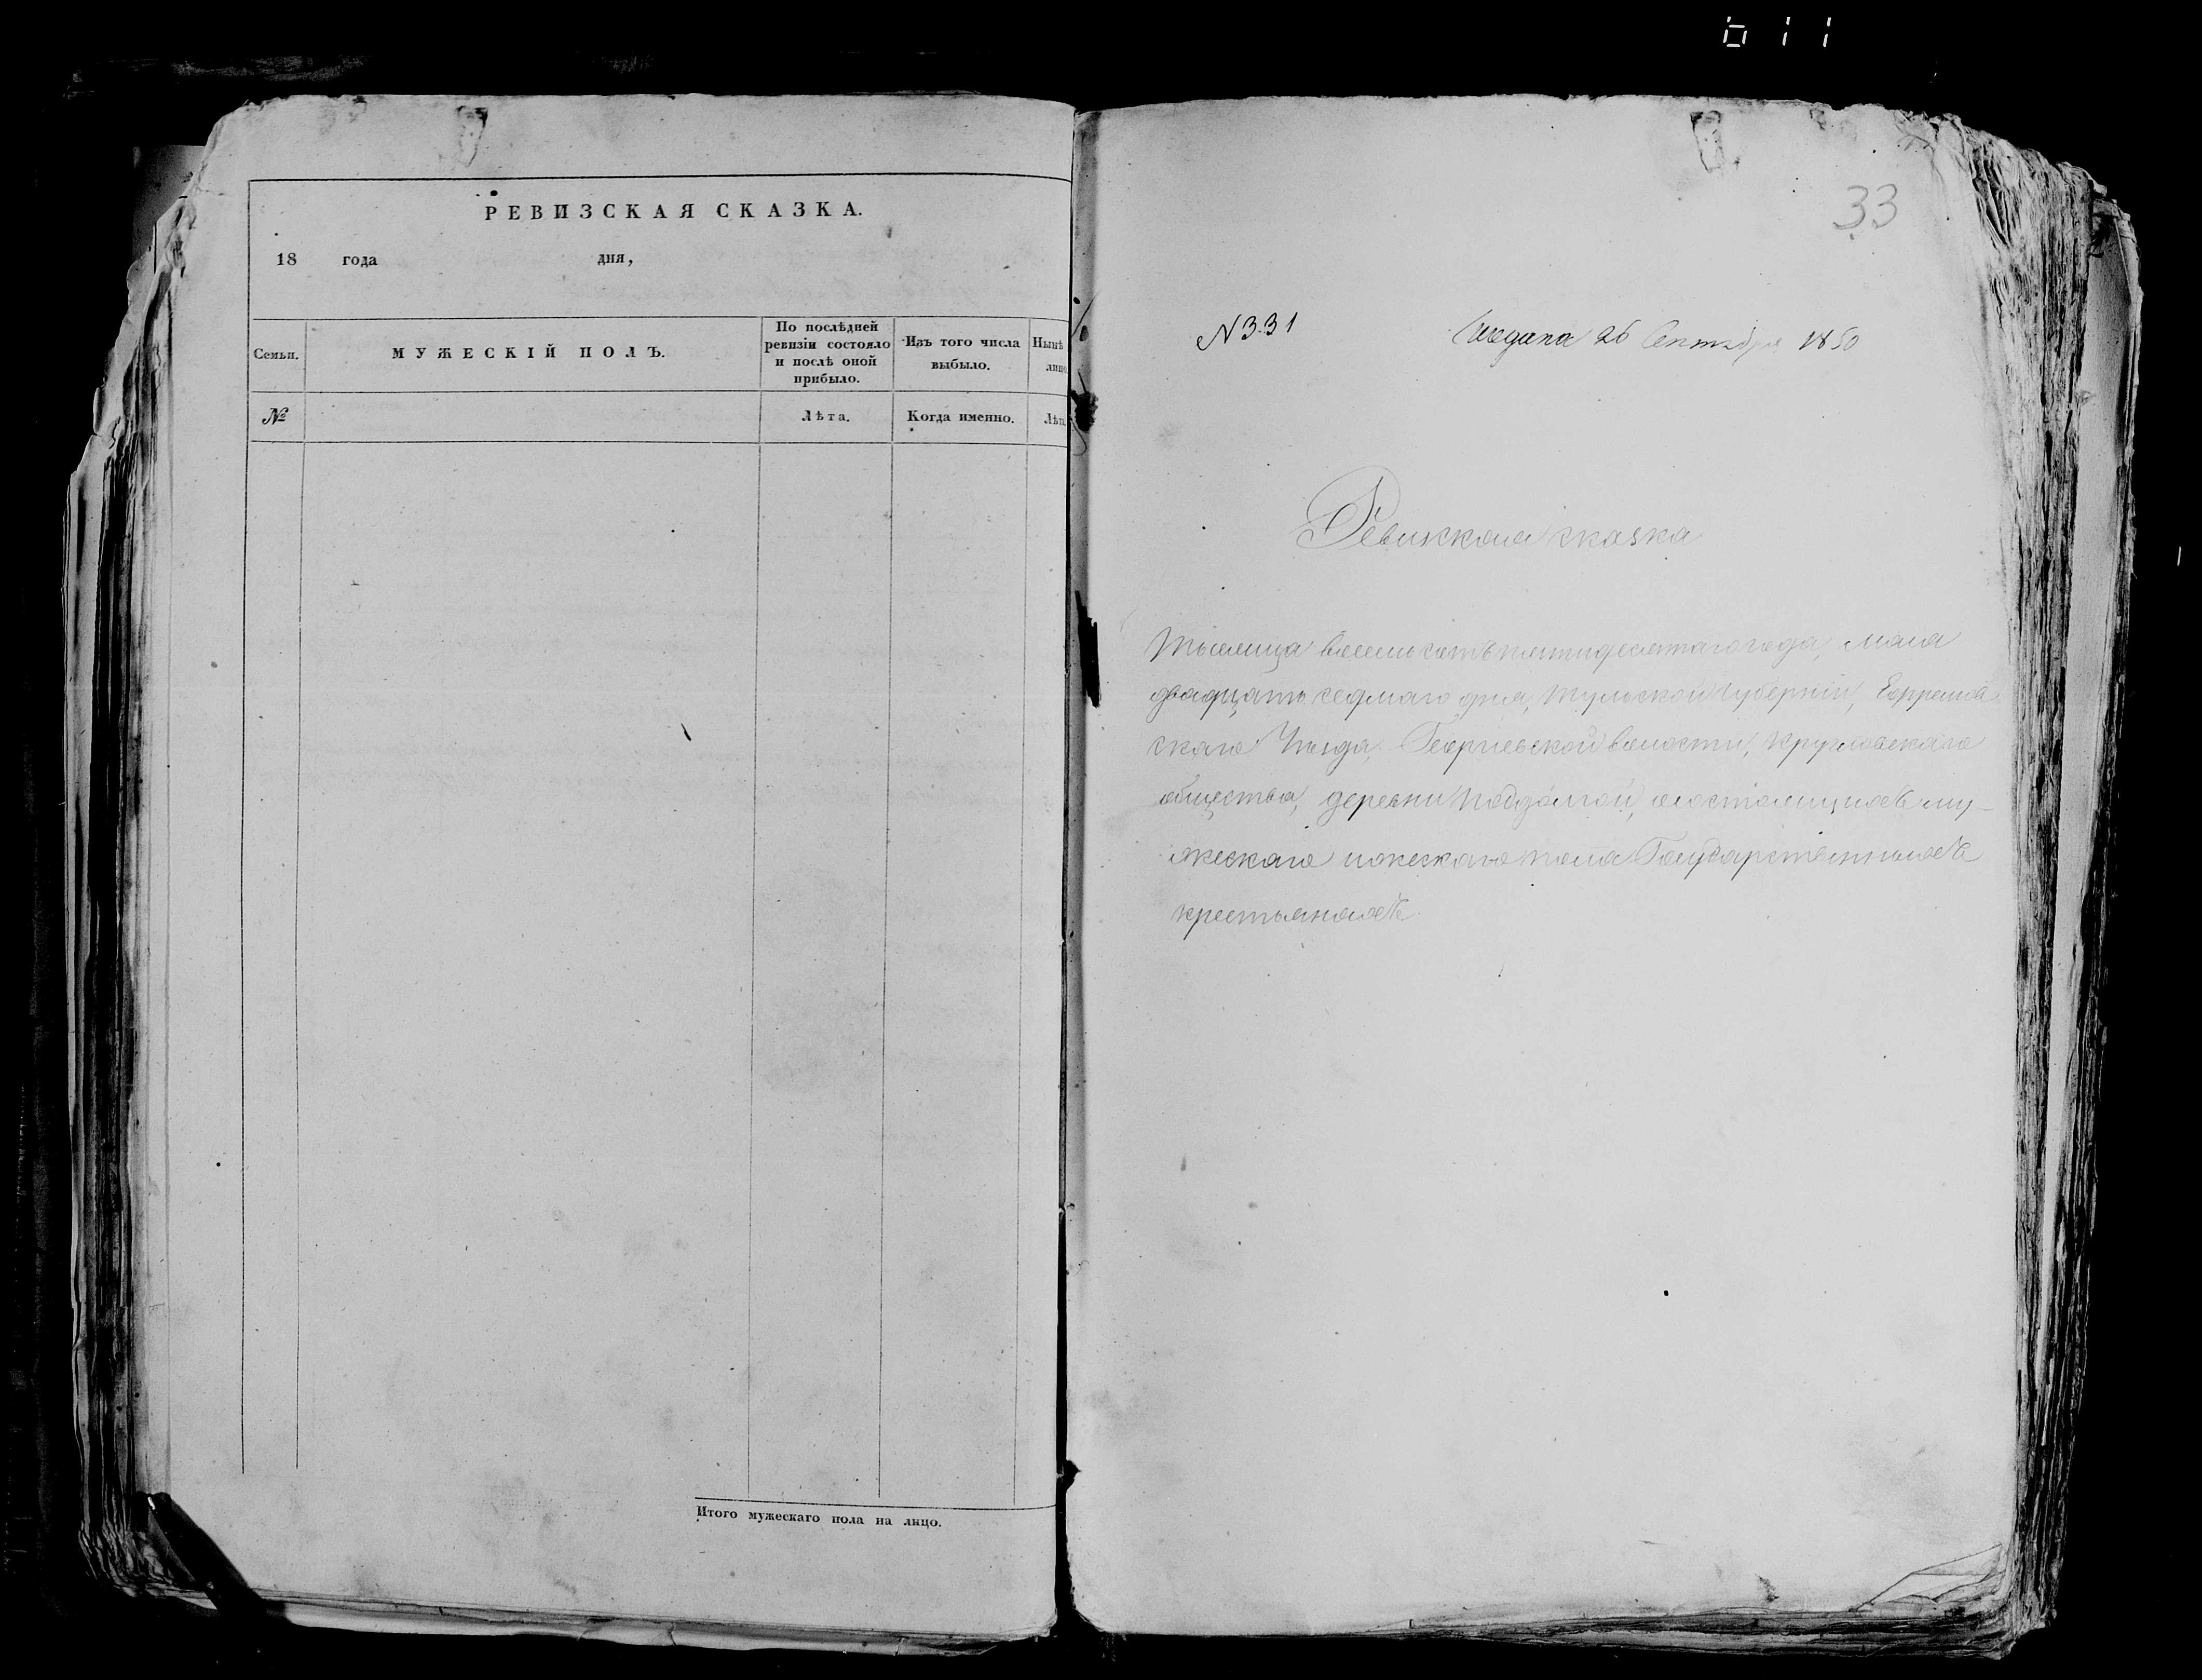 РЕВИЗСКАЯ СКАЗКА.
18 года дня,
Семьи.
МУЖЕСКІЙ ПОЛЪ.
По послѣдней
ревизіи состояло
и послѣ оной
прибыло.
Изъ того числа
выбыло.
Нынѣ
лицо
№
Лѣта.
Когда именно.
Лѣта
Итого мужескаго пола на лицо.
33
N 331
26 Сентября 1850
Ревизская сказка
Тысяща восемь сотъ пятидесятаго года, маія
двадцать седмаго дня, Тульской Губерніи, Ефремов
скаго Уѣзда, Георгіевской волости, Кругловскаго
общества, деревни состоящихъ му-
жескаго и женскаго пола Государственныхъ
крестьянахъ